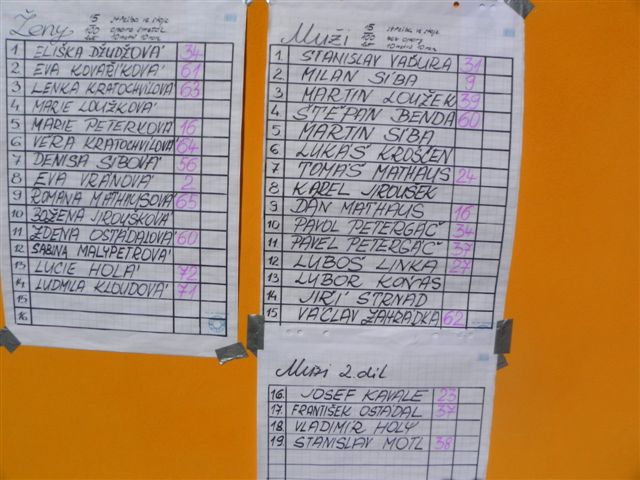 Ženy
1 ELIŠKA DŽUDŽOVÁ 34
2 EVA KOVAŘÍKOVÁ 61
3 LENKA KRATOCHVÍLOVÁ 63
4 MARIE LOUŽKOVÁ
5 MARIE PETERKOVÁ 16
6 VĚRA KRATOCHVÍLOVÁ 64
7 DENISA SIBOVÁ 56
8 EVA VRANOVÁ 2
9 ROMANA MATHAUSOVÁ 65
10 BOŽENA JIROUŠKOVÁ
11 ZDENA OSTÁDALOVÁ 60
12 SABINA MALYPETROVÁ
13 LUCIE HOLÁ 72
14 LUDMILA KLOUDOVÁ 71
15
16.
Muži
1. STANISLAV VABURA 31
2. MILAN SIBA 9
3 MARTIN LOUŽEK 39
4 ŠTĚPÁN BENDA 60
5 MARTIN SIBA
6 LUKÁŠ KROŠČEN
7 TOMÁŠ MATHAUS 24
8 KAREL JIROUŠEK
9 DAN MATHAUS 16
10 PAVOL PETERGÁČ 34
11 PAVEL PETERGÁČ 37
12 LUBOŠ LINKA 27
13 LUBOR KONÁS
14 JIŘÍ STRNAD
15 VÁCLAV ZAHRÁDKA 62
Muži 2. díl
16. JOSEF KAVALE 23
17. FRANTIŠEK OSTÁDAL 37
18. VLADIMÍR HOLÝ
19 STANISLAV MOTL 38